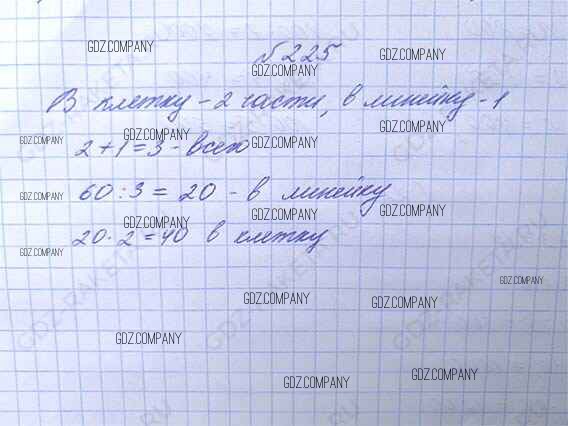 GDZ.COMPANY
№ 225
GDZ.COMPANY
GDZ.COMPANY
В клетку - 2 части, в линейку - 1
GDZ.COMPANY
GDZ.COMPANY
GDZ.COMPANY
GDZ.COMPANY
2 + 1 = 3 - всего
60 : 3 = 20 - в линейку
GDZ.COMPANY
GDZ.COMPANY
GDZ.COMPANY
GDZ.COMPANY
20 · 2 = 40 в клетку
GDZ.COMPANY
GDZ.COMPANY
GDZ.COMPANY
GDZ.COMPANY
GDZ.COMPANY
GDZ.COMPANY
GDZ.COMPANY